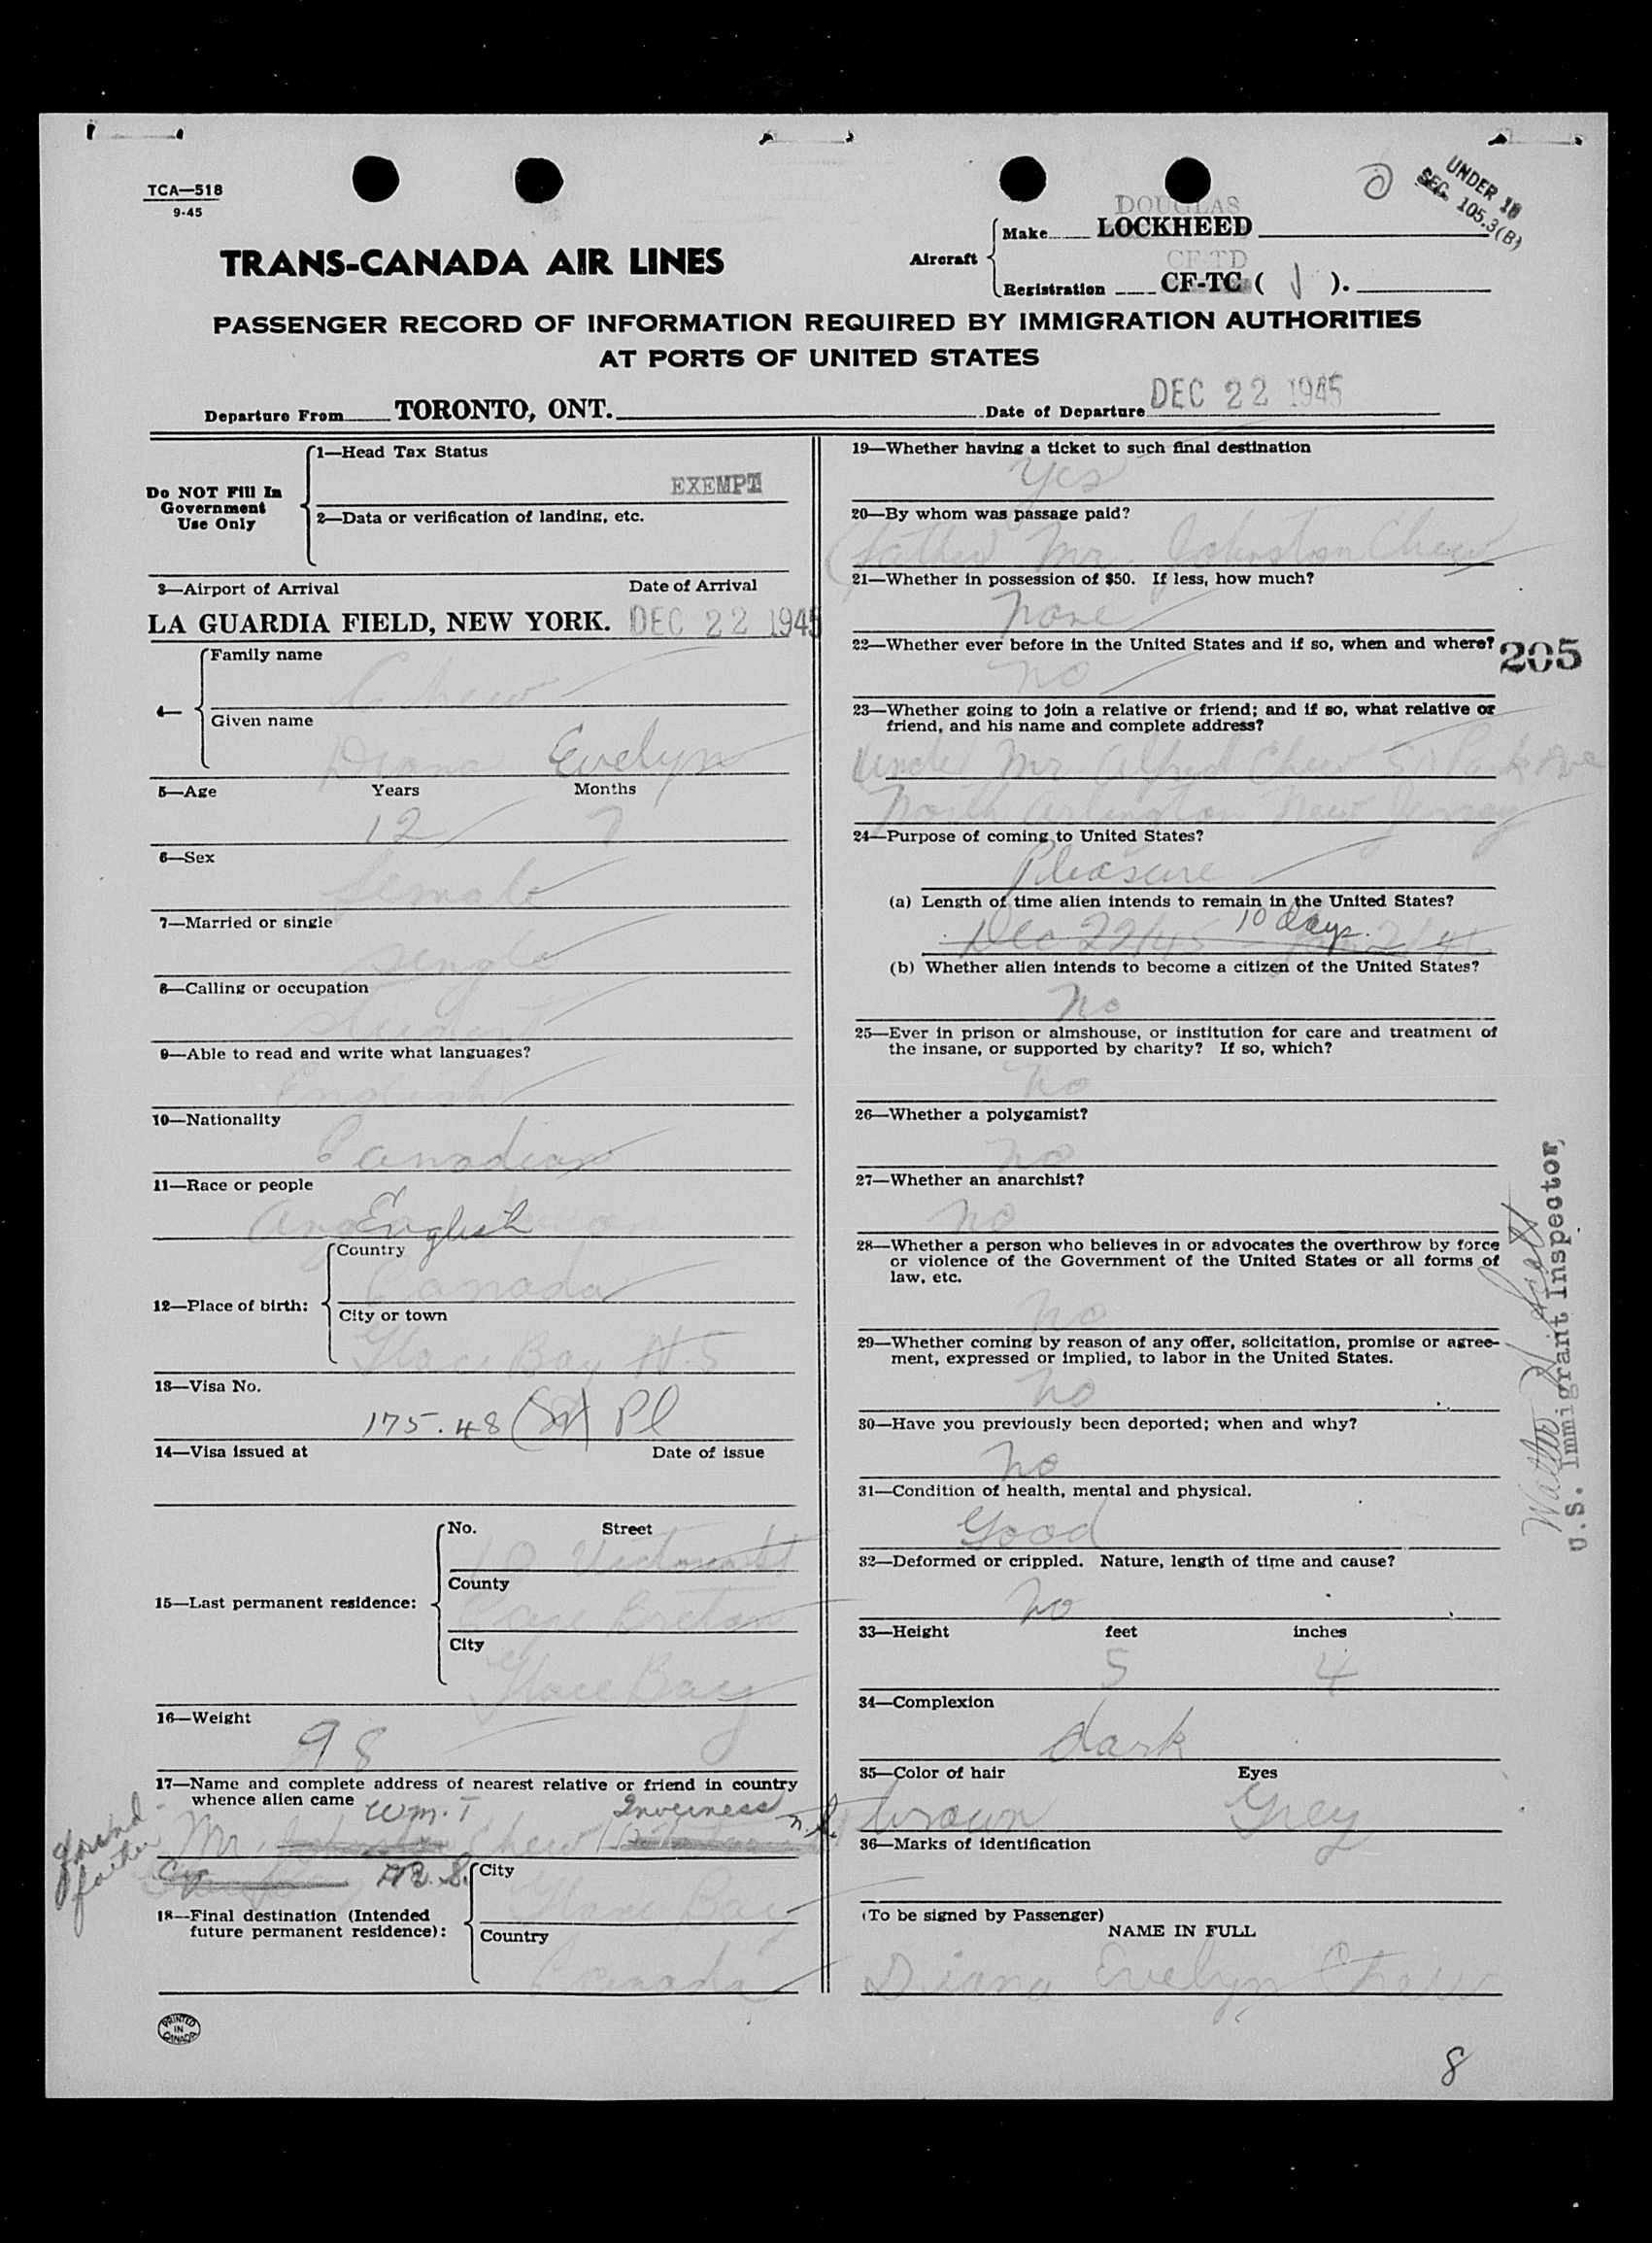 UNDER 18
SEC. 105.3(B)
TCA—518
9-45
DOUGLAS
Make LOCKHEED
TRANS-CANADA AIR LINES
Aircraft
CF-TD
Registration CF-TC ( J ).
PASSENGER RECORD OF INFORMATION REQUIRED BY IMMIGRATION AUTHORITIES
AT PORTS OF UNITED STATES
Departure From TORONTO, ONT. Date of Departure DEC 22 1945
Do NOT Fill In
Government
Use Only
1—Head Tax Status
EXEMPT
2—Data or verification of landing, etc.
3—Airport of Arrival Date of Arrival
LA GUARDIA FIELD, NEW YORK. DEC 22 1945
4—
Family name
Chew
Given name
Diana Evelyn
5—Age Years Months
12 7
6—Sex
female
7—Married or single
single
8—Calling or occupation
student
9—Able to read and write what languages?
English
10—Nationality
Canadian
11—Race or people
English
12—Place of birth:
Country
Canada
City or town
Glace Bay N.S
13—Visa No.
175.48 Pl
14—Visa issued at Date of issue
15—Last permanent residence:
No. Street
10 Victoria St
County
Cape Breton
City
Glace Bay
16—Weight
98
17—Name and complete address of nearest relative or friend in country
whence alien came
Wm. T Inverness N.S.
grand
father
Mr. Chew
18—Final destination (Intended
future permanent residence):
City
Glace Bay
Country
Canada
PRINTED
IN
CANADA
19—Whether having a ticket to such final destination
yes
20—By whom was passage paid?
(father) Mr. Johnston Chew
21—Whether in possession of $50. If less, how much?
none
22—Whether ever before in the United States and if so, when and where?
no
205
23—Whether going to join a relative or friend; and if so, what relative or
friend, and his name and complete address?
Uncle Mr Alfred Chew 50 Park Ave
North Arlington New Jersey
24—Purpose of coming to United States?
Pleasure
(a) Length of time alien intends to remain in the United States?
10 days.
Dec 22/45
(b) Whether alien intends to become a citizen of the United States?
no
25—Ever in prison or almshouse, or institution for care and treatment of
the insane, or supported by charity? If so, which?
no
26—Whether a polygamist?
no
27—Whether an anarchist?
no
28—Whether a person who believes in or advocates the overthrow by force
or violence of the Government of the United States or all forms of
law, etc.
no
29—Whether coming by reason of any offer, solicitation, promise or agree-
ment, expressed or implied, to labor in the United States.
no
30—Have you previously been deported; when and why?
no
31—Condition of health, mental and physical.
Good
32—Deformed or crippled. Nature, length of time and cause?
no
33—Height feet inches
5 4
34—Complexion
dark
35—Color of hair Eyes
brown Grey
36—Marks of identification
(To be signed by Passenger)
NAME IN FULL
Diana Evelyn Chew
U.S. Immigrant Inspector,
8